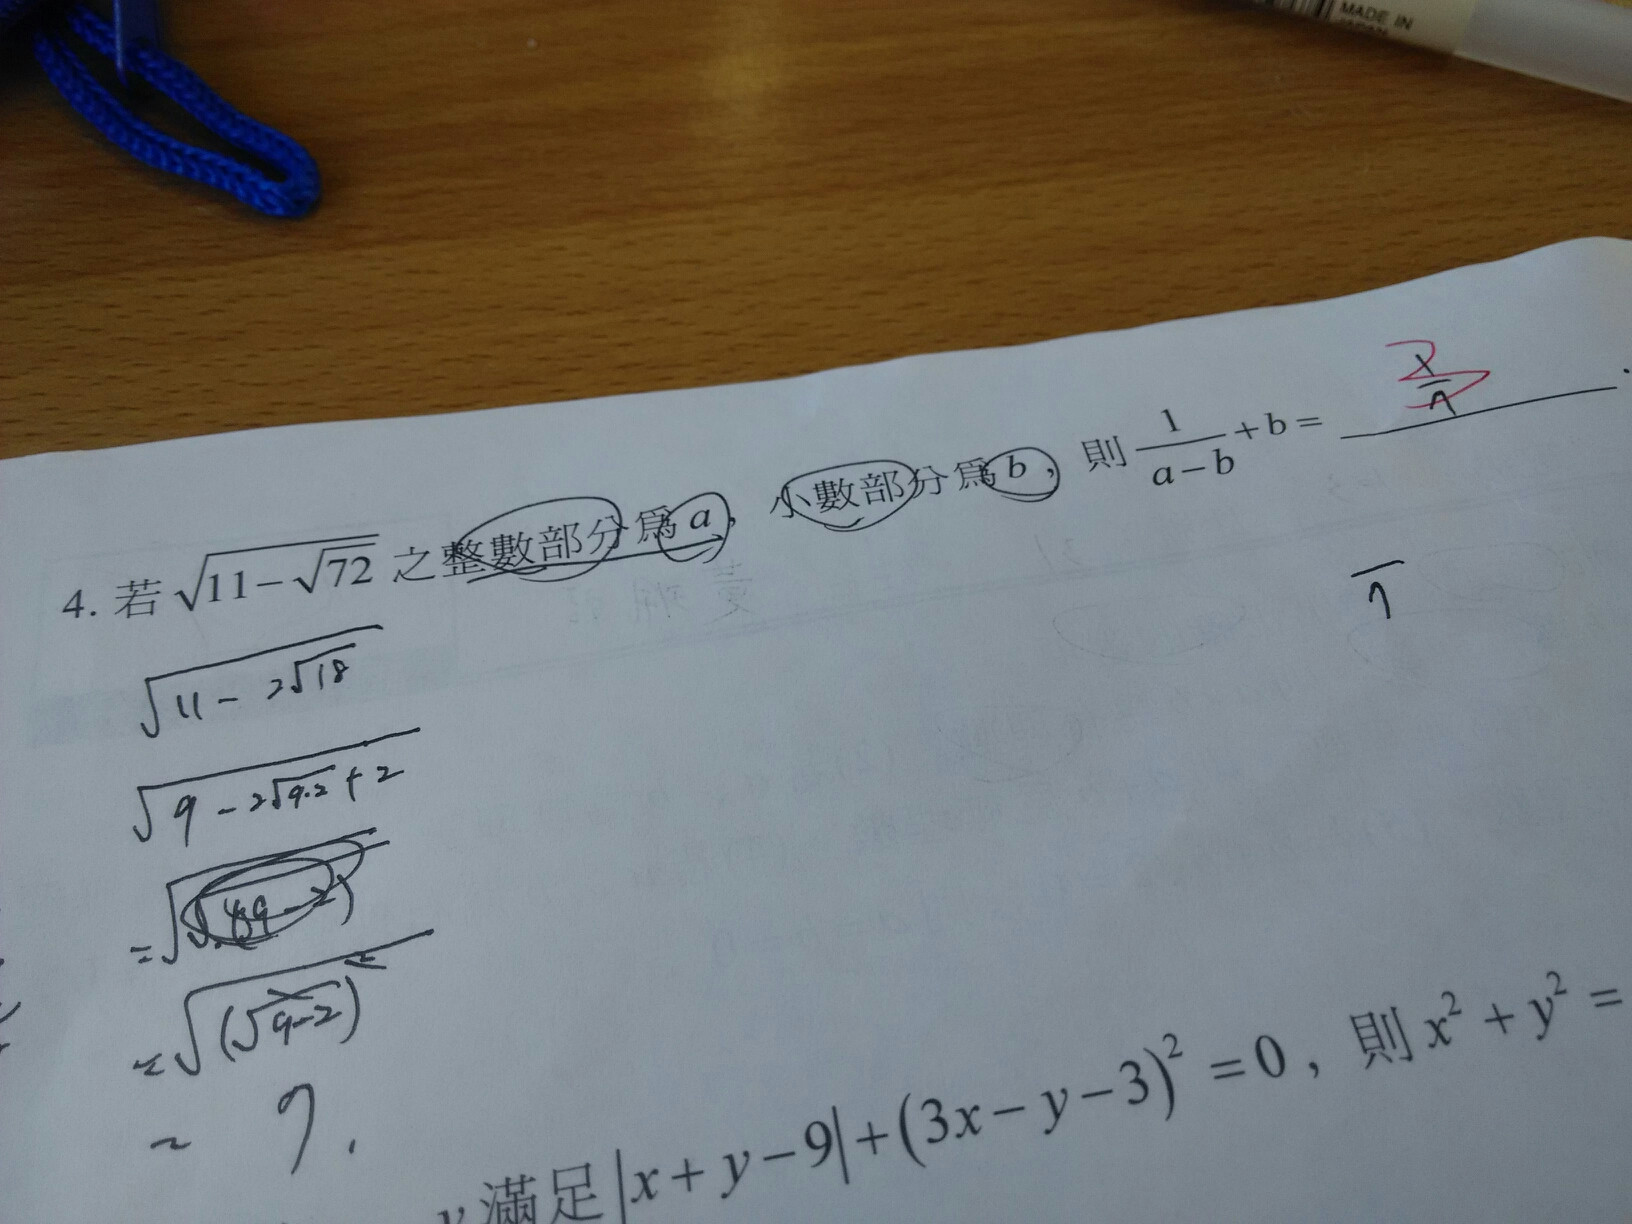 MADE IN
JAPAN
4. 若√(11−√72) 之整數部分爲a, 小數部分爲b, 則 1/(a−b) +b=
√(11 − 2√18)
√(9 − 2√(9·2) + 2)
= √(√(9−2)²)
= 7.
y 滿足 |x+y−9|+(3x−y−3)²=0, 則 x²+y²=